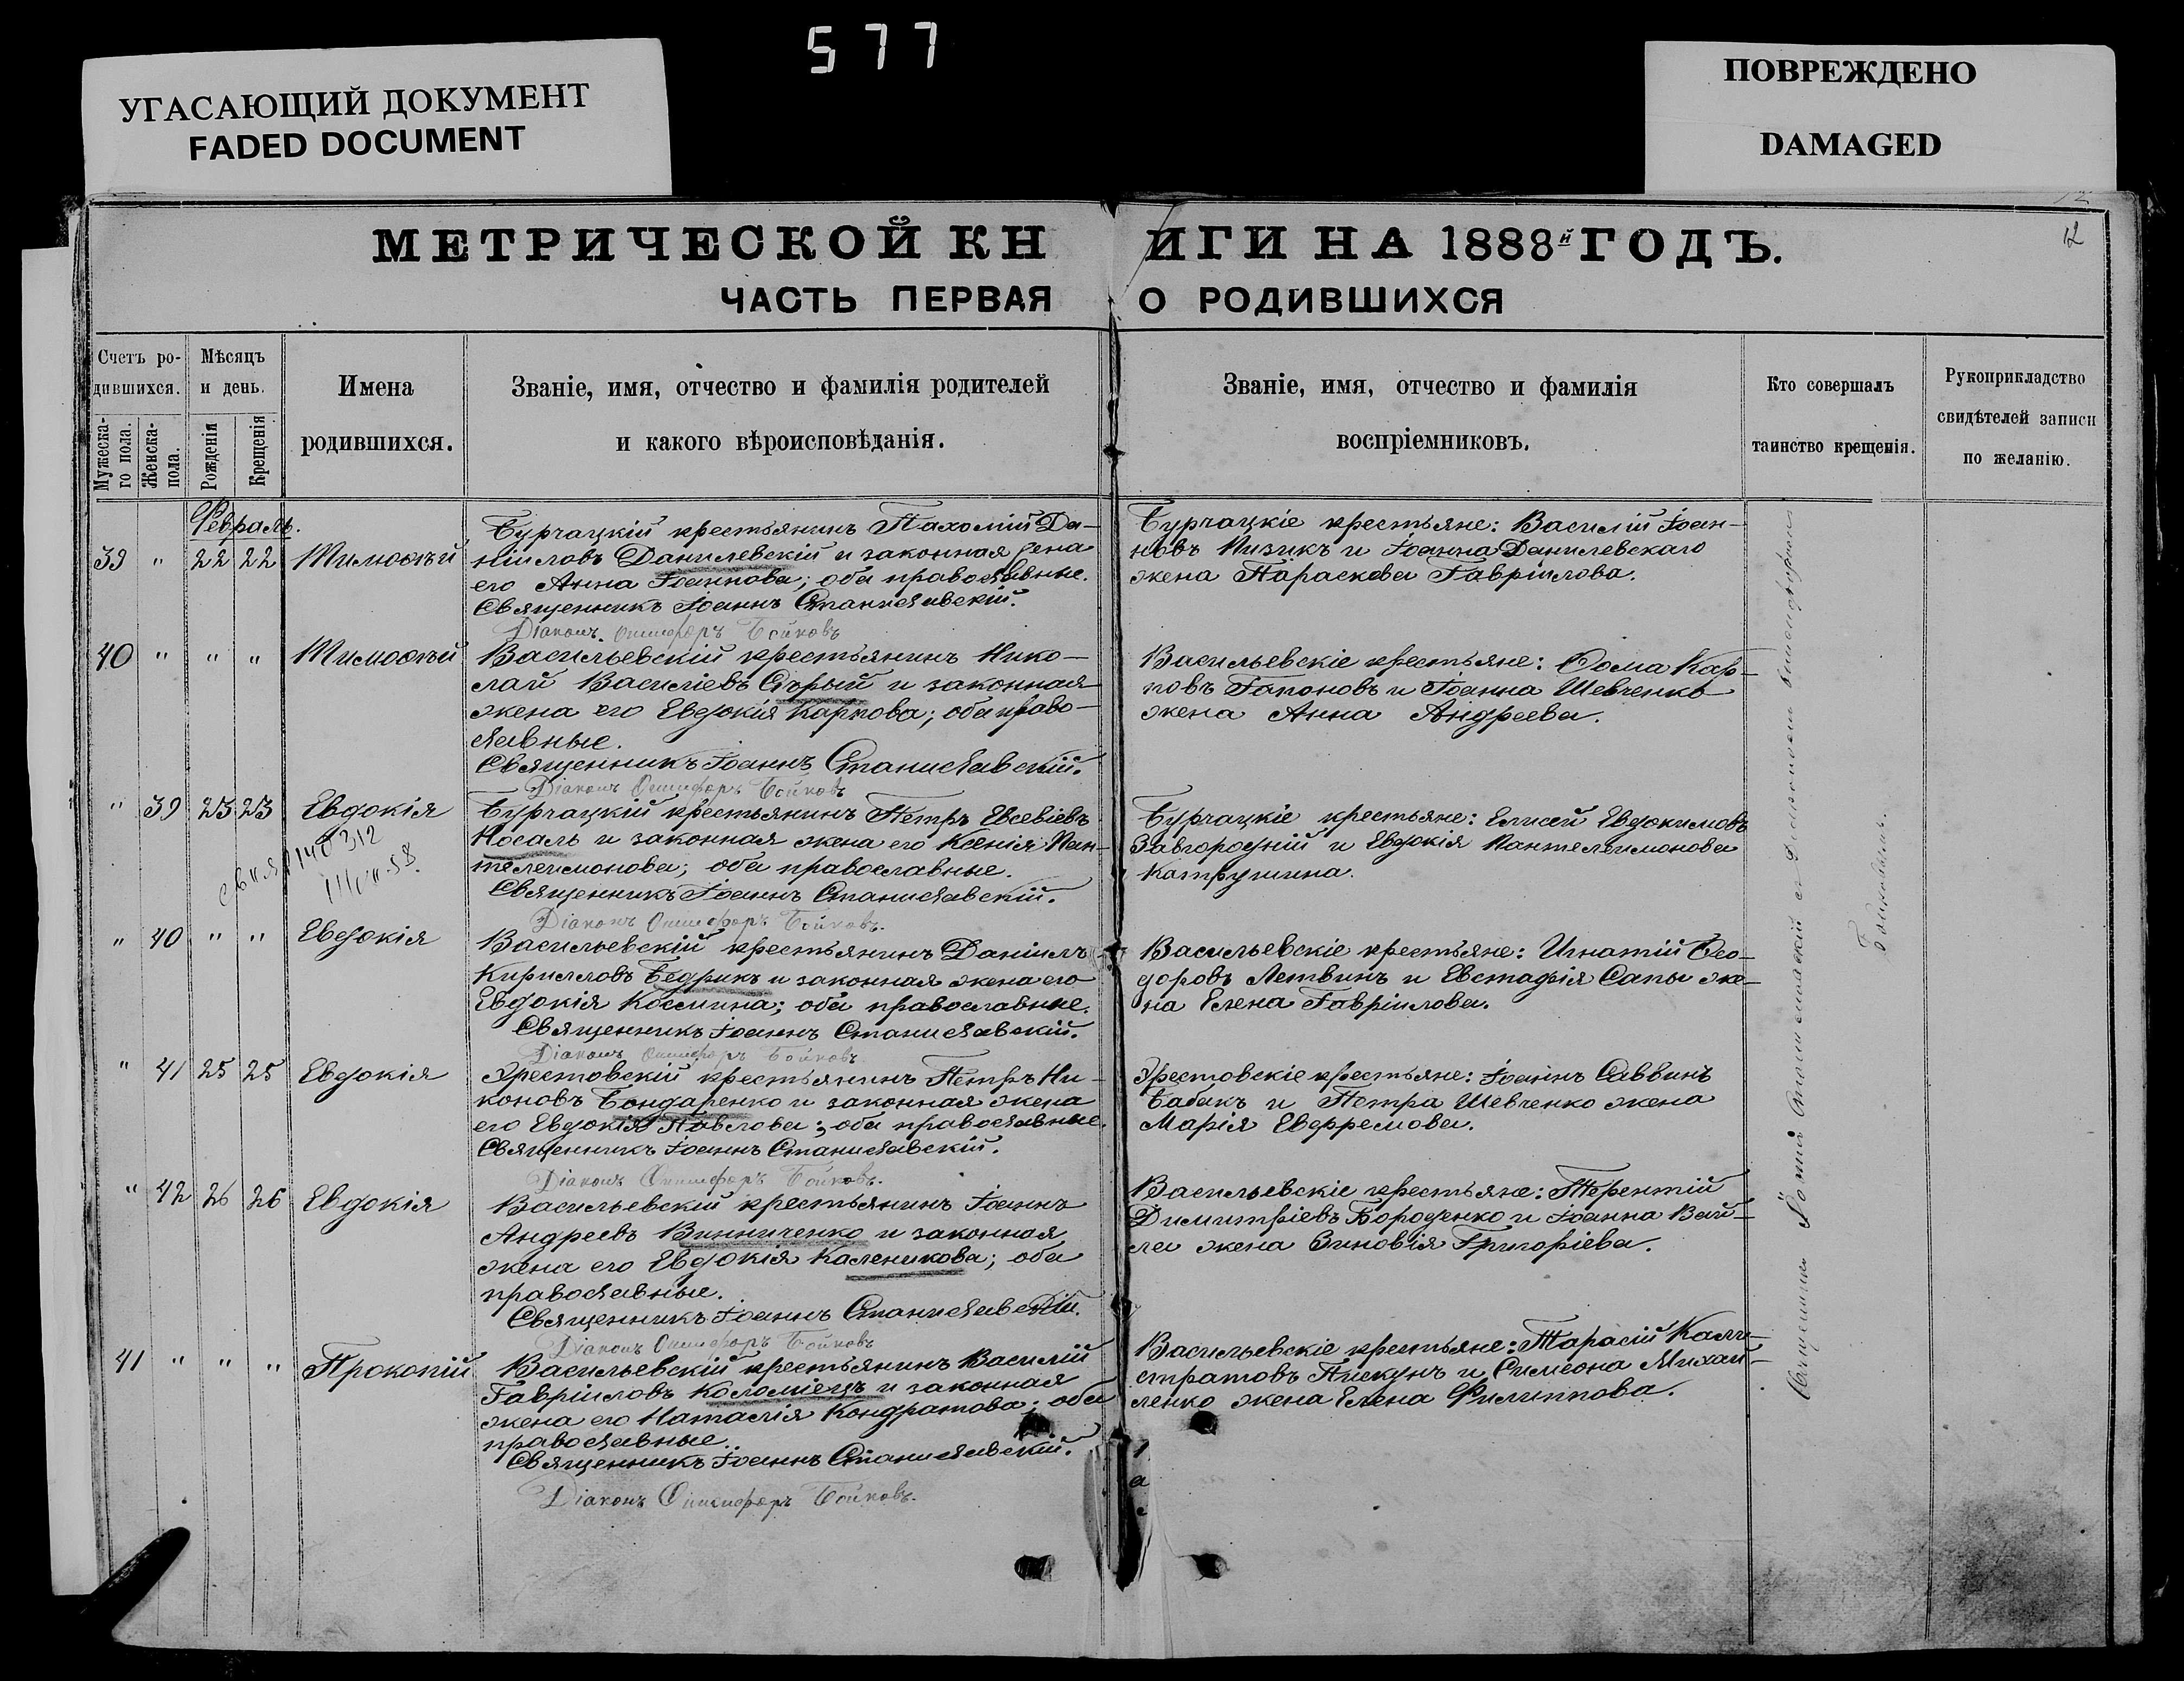 577
УГАСАЮЩИЙ ДОКУМЕНТ
FADED DOCUMENT
ПОВРЕЖДЕНО
DAMAGED
12
МЕТРИЧЕСКОЙ КН ИГИ НА 1888й ГОДЪ.
ЧАСТЬ ПЕРВАЯ О РОДИВШИХСЯ
Счетъ ро-
дившихся.
Мужеска-
го пола.
Женска-
пола.
Мѣсяцъ
и день.
Рожденія
Крещенія
Имена
родившихся.
Званіе, имя, отчество и фамилія родителей
и какого вѣроисповѣданія.
Званіе, имя, отчество и фамилія
воспріемниковъ.
Кто совершалъ
таинство крещенія.
Рукоприкладство
свидѣтелей записи
по желанію.
Февраль.
39 " 22 22 Тимоѳѣй
Бурчацкій крестьянинъ Пахомій Да-
ніиловъ Данилевскій и законная жена
его Анна Іоаннова; оба православные.
Священникъ Іоаннъ Станиславскій.
Діаконъ Онисифоръ Бойковъ
Бурчацкіе крестьяне: Василій Іоан-
новъ Пизикъ и Іоанна Данилевскаго
жена Параскева Гавріилова.
40 " " " Тимоѳѣй
Васильевскій крестьянинъ Нико-
лай Василіевъ Сѣрый и законная
жена его Евдокія Карпова; оба право-
славные.
Священникъ Іоаннъ Станиславскій.
Діаконъ Онисифоръ Бойковъ
Васильевскіе крестьяне: Ѳома Кар-
повъ Гапоновъ и Іоанна Шевченко
жена Анна Андреева.
" 39 23 23 Евдокія
Бурчацкій крестьянинъ Петръ Евсевіевъ
Носаль и законная жена его Ксенія Пан-
телеимонова; оба православные.
Священникъ Іоаннъ Станиславскій.
Діаконъ Онисифоръ Бойковъ.
Бурчацкіе крестьяне: Елисей Евдокимовъ
Завгородній и Евдокія Пантелеимонова
Катрушина.
" 40 " " Евдокія
Васильевскій крестьянинъ Даніилъ
Кирилловъ Бедрикъ и законная жена его
Евдокія Космина; оба православные.
Священникъ Іоаннъ Станиславскій.
Діаконъ Онисифоръ Бойковъ.
Васильевскіе крестьяне: Игнатій Ѳео-
доровъ Летвинъ и Евстафія Сапы же-
на Елена Гавріилова.
" 41 25 25 Евдокія
Эрестовскій крестьянинъ Петръ Ни-
коновъ Бондаренко и законная жена
его Евдокія Павлова; оба православные.
Священникъ Іоаннъ Станиславскій.
Діаконъ Онисифоръ Бойковъ.
Эрестовскіе крестьяне: Іоаннъ Саввинъ
Бабакъ и Петра Шевченко жена
Марія Евфремова.
" 42 26 26 Евдокія
Васильевскій крестьянинъ Іоаннъ
Андреевъ Винниченко и законная
жена его Евдокія Каленикова; оба
православные.
Священникъ Іоаннъ Станиславскій.
Діаконъ Онисифоръ Бойковъ
Васильевскіе крестьяне: Терентій
Димитріевъ Бороденко и Іоанна Вай-
ла жена Зиновія Григоріева.
41 " " " Прокопій
Васильевскій крестьянинъ Василій
Гавріиловъ Коломіецъ и законная
жена его Наталія Кондратова; оба
православные.
Священникъ Іоаннъ Станиславскій.
Діаконъ Онисифоръ Бойковъ.
Васильевскіе крестьяне: Тарасій Кали-
стратовъ Пискунъ и Симеона Михай-
ленко жена Елена Филиппова.
Священникъ Іоаннъ Станиславскій съ діакономъ Онисифоромъ
Бойковымъ.